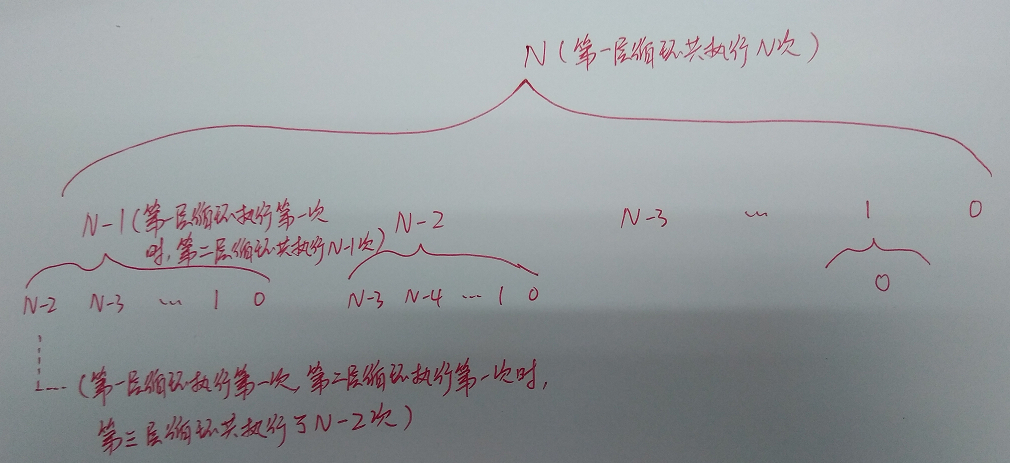 N(第一层循环共执行N次)
N-1(第一层循环执行第一次
时,第二层循环共执行N-1次)
N-2
N-3 … 1 0
N-2 N-3 … 1 0
N-3 N-4 … 1 0
0
(第一层循环执行第一次,第二层循环执行第一次时,
第三层循环共执行了N-2次)